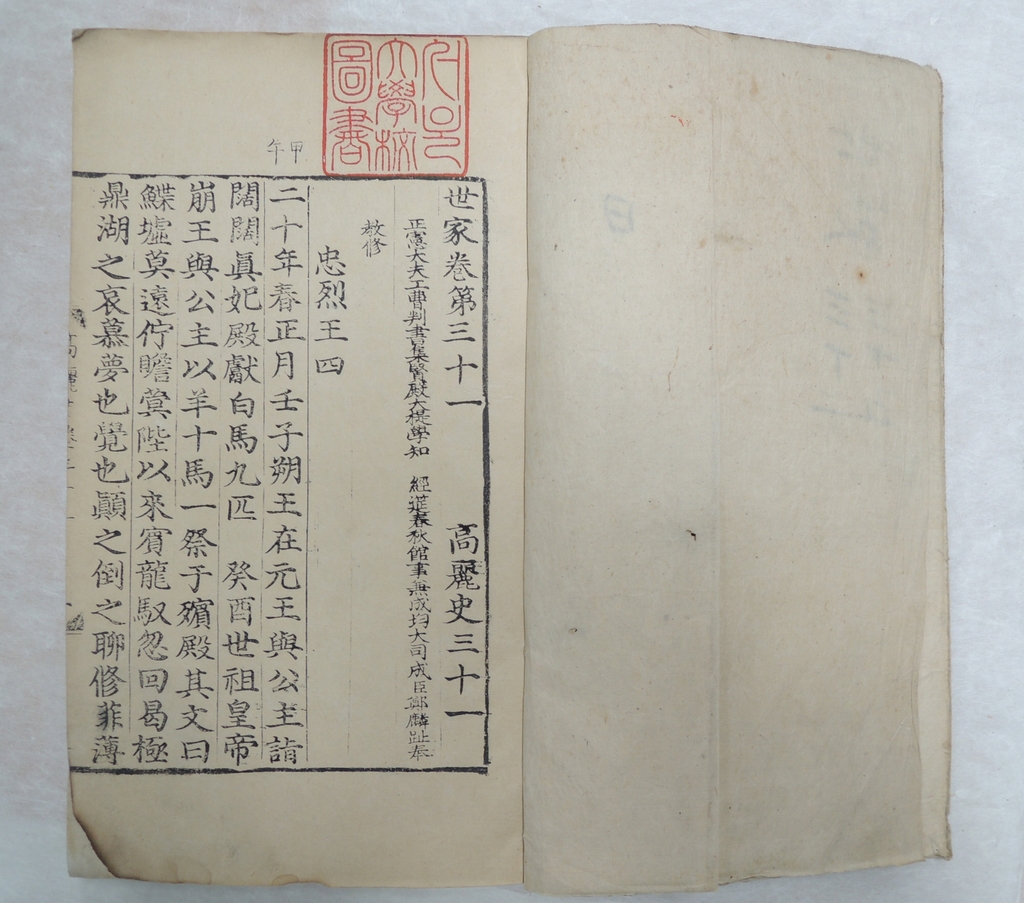 大學校
圖書
世家卷第三十一 高麗史三十一
正憲大夫工曹判書集賢殿大提學知 經筵春秋館事兼成均大司成臣鄭麟趾奉
敎修
忠烈王四
甲午
二十年春正月壬子朔王在元王與公主詣
闊闊眞妃殿獻白馬九匹 癸酉世祖皇帝
崩王與公主以羊十馬一祭于殯殿其文曰
鰈墟莫遠佇瞻蓂陛以來賓龍馭忽回曷極
鼎湖之哀慕夢也覺也顚之倒之聊修菲薄